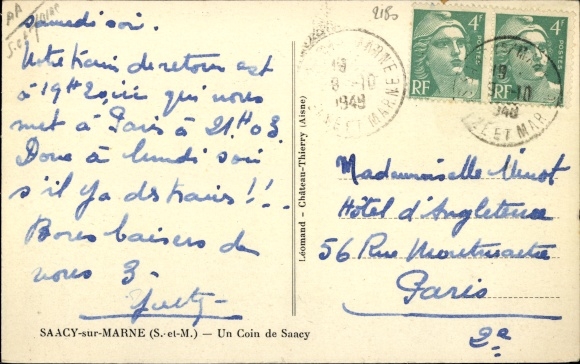 samedi soir.
Notre train de retour est
à 19H20, ici qui nous
met à Paris à 21H03
Donc à lundi soir
s'il y a des trains !!.
Bons baisers de
nous 3-
SAACY-sur-MARNE (S.-et-M.) — Un Coin de Saacy
Léomand - Château-Thierry (Aisne)
2180
19
8 -10
1949
SEINE ET MARNE
4F
POSTES
RF
4F
POSTES
RF
19
10
ET MAR
Mademoiselle Minot
Hôtel d'Angleterre
56 Rue Montmartre
Paris
2e